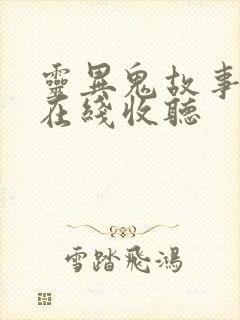 靈異鬼故事
在綫收聽
雪踏飛鴻